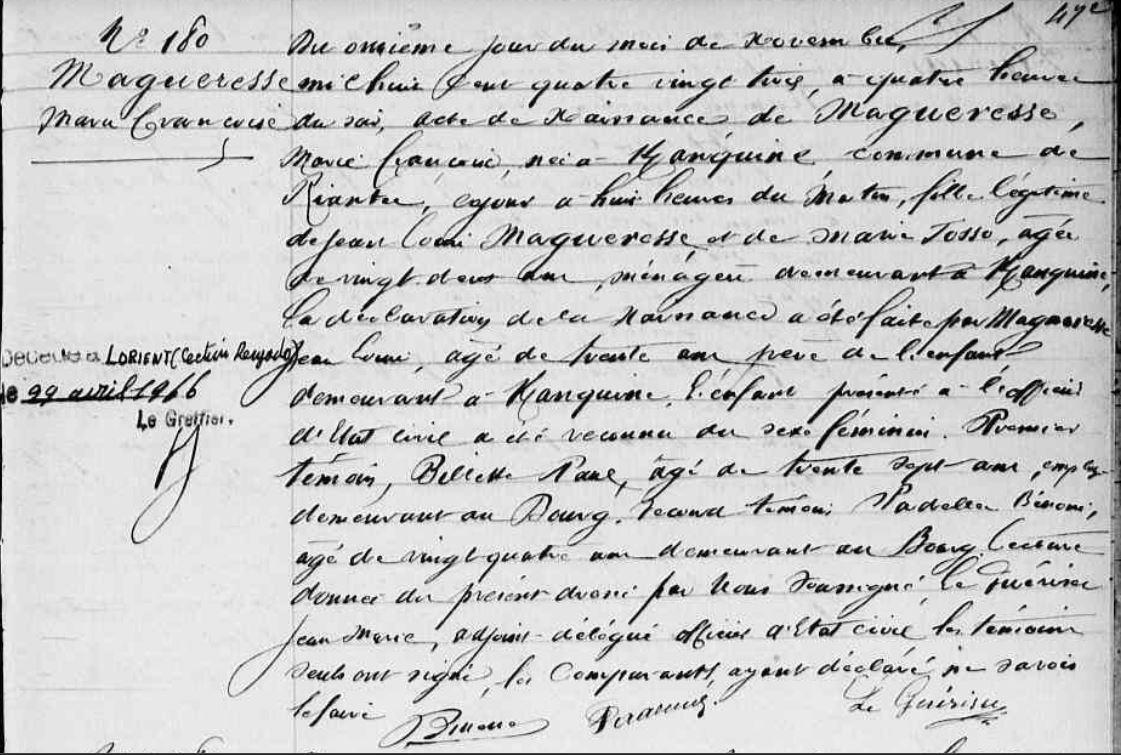 47e
N° 180
Magueresse
Marie Françoise
Du onzième jour du mois de Novembre,
mil huit cent quatre vingt trois, à quatre heures
du soir, acte de Naissance de Magueresse,
Marie Françoise, née à Kanquine commune de
Riantec, ce jour à huit heures du Matin, fille légitime
de Jean Louis Magueresse et de Marie Tosso, agée
de vingt deux ans, ménagère demeurant à Kanquine,
La déclaration de la Naissance a été faite par Magueresse
Jean Louis, agé de trente ans père de l'enfant
demeurant à Kanquine. L'enfant présenté à l'officier
d'Etat civil a été reconnu du sexe féminin. Premier
témoin, Billette Paul, âgé de trente sept ans, employé
demeurant au Bourg. Second témoin Padellec Bénoni,
agé de vingt quatre ans demeurant au Bourg. Lecture
donnée du présent par Nous Soussigné, le Guérisec
Jean Marie, adjoint délégué officier d'Etat civil les témoins
seuls ont signé, les Comparants, ayant déclaré ne savoir
le faire
Le Guérisec
Décédée à LORIENT
le 29 avril 1966
Le Greffier.